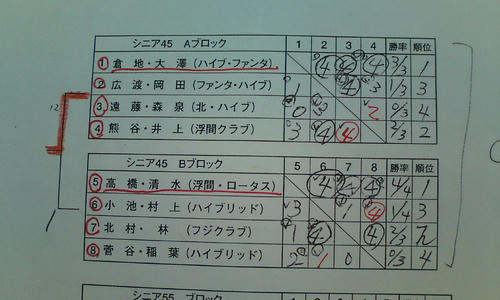 シニア45 Aブロック 1 2 3 4 勝率 順位
① 倉地・大澤(ハイブ・ファンタ) ④ ④ ④ 3/3 1
② 広渡・岡田(ファンタ・ハイブ) 1 ④ 3 1/3 3
③ 遠藤・森泉(北・ハイブ) 0 2 0/3 4
④ 熊谷・井上(浮間クラブ) 3 ④ ④ 2/3 2
シニア45 Bブロック 5 6 7 8 勝率 順位
⑤ 高橋・清水(浮間・ロータス) ④ ④ ④ 1
⑥ 小池・村上(ハイブリッド) 3 1 ④ 1/4 3
⑦ 北村・林(フジクラブ) 1 ④ ④ 2/3 2
⑧ 菅谷・稲葉(ハイブリッド) 2 1 0 0/3 4
シニア55